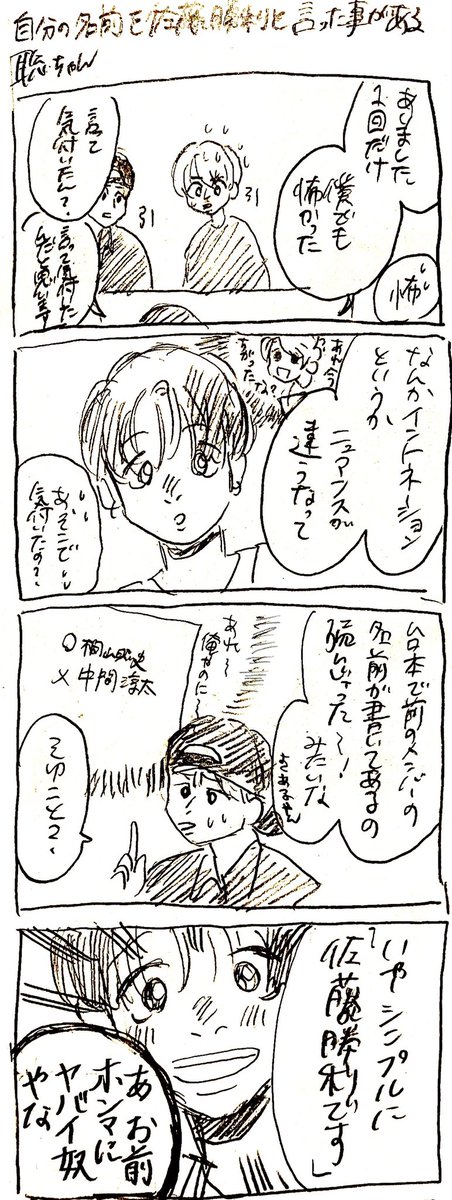 自分の名前を佐藤勝利と言った事がある
聡ちゃん
ありました
1回だけ
僕でも
怖かった
怖い
引
引
言って
気付いたん?
言って気付いた
んだと思います
なんかイントネーション
というか
ニュアンスが
違うなって
あれ今
ちがったな?
あそこで
気付いたの?
台本で前のメンバーの
名前が書いてあるの
読んじゃった〜!
みたいな
よくあるやん
あれ〜
俺やのに〜
○桐山照史
×中間淳太
そゆこと?
いやシンプルに
「佐藤勝利です」
あ お前
ホンマに
ヤバイ奴
やな